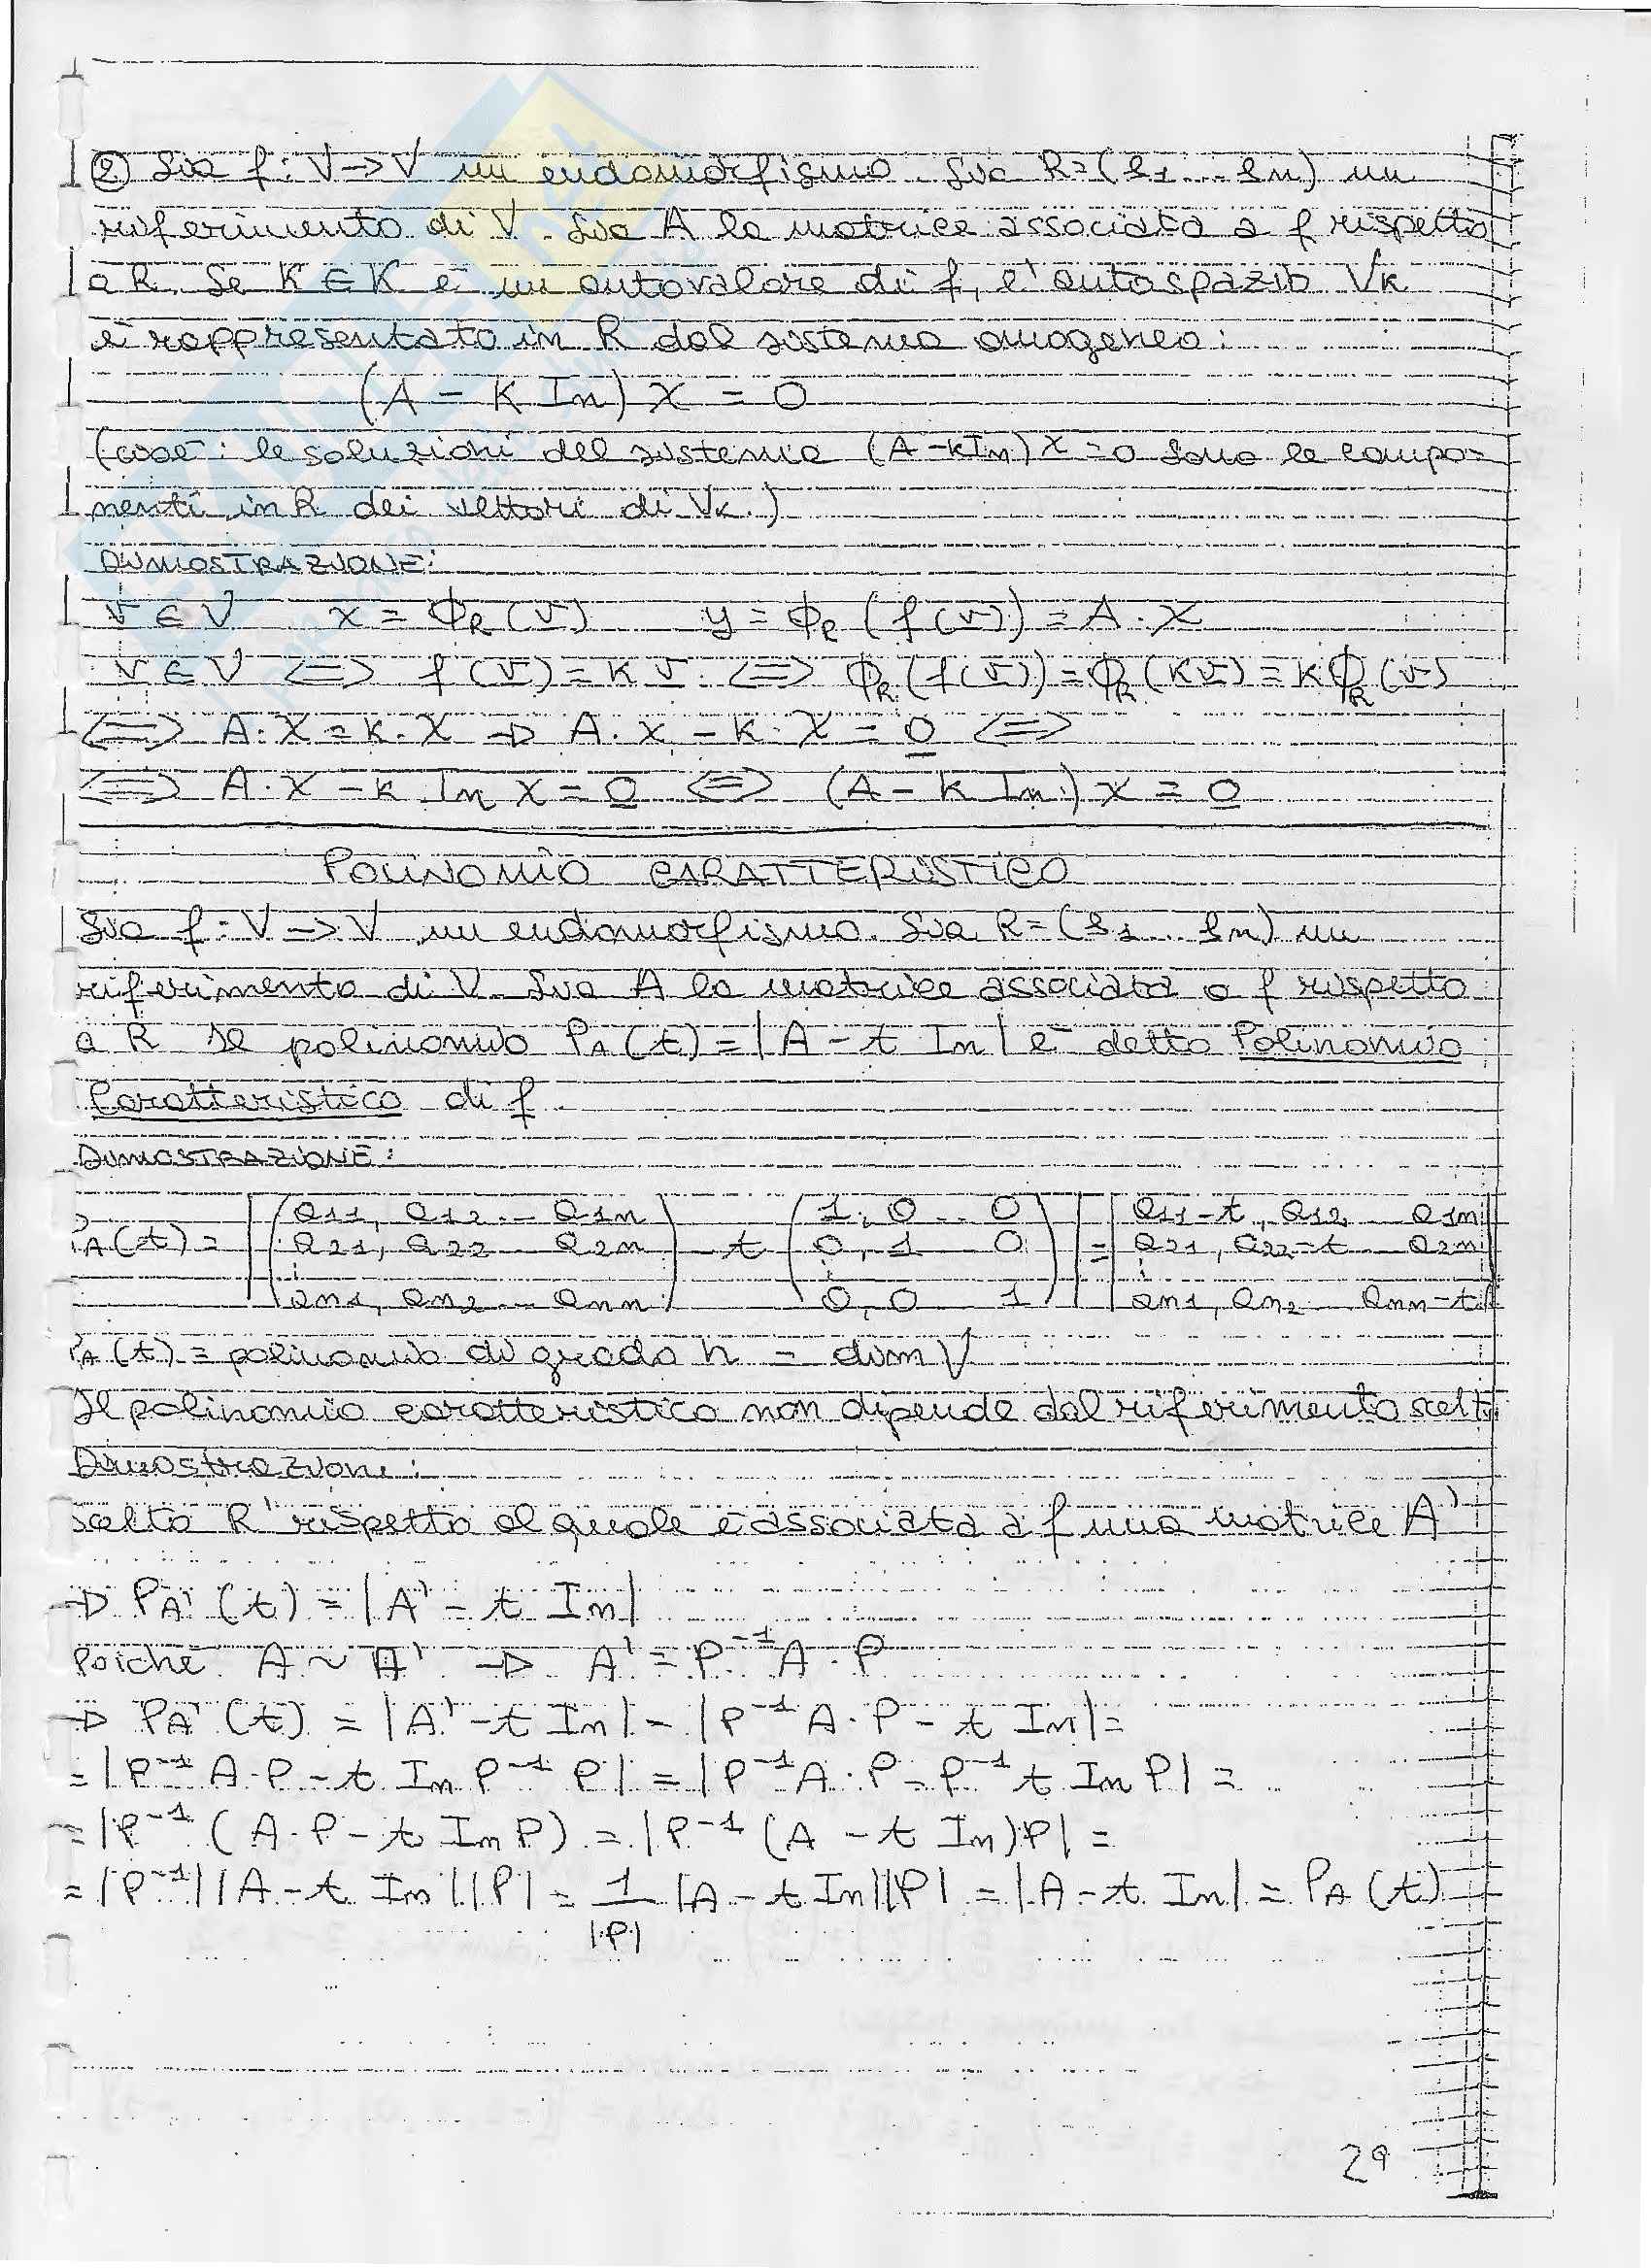 ② Sia f: V → V un endomorfismo. Sia R=(e₁...en) un
riferimento di V. Sia A la matrice associata a f rispetto
a R. Se K ∈ K è un autovalore di f, l'autospazio Vk
è rappresentato in R dal sistema omogeneo:
(A - K In) X = 0
(cioè: le soluzioni del sistema (A-kIn)X=0 sono le compo=
nenti in R dei vettori di Vk.)
DIMOSTRAZIONE:
v ∈ V x = ϕR(v) y = ϕR(f(v)) = A·X
v ∈ V <=> f(v) = Kv <=> ϕR(f(v)) = ϕR(Kv) = KϕR(v)
<=> A·X = K·X → A·x - K·X = 0 <=>
<=> A·X - K In X = 0 <=> (A - K In) X = 0
POLINOMIO CARATTERISTICO
Sia f: V → V un endomorfismo. Sia R=(e₁...en) un
riferimento di V. Sia A la matrice associata a f rispetto
a R Il polinomio PA(t) = |A - t In| è detto Polinomio
Caratteristico di f.
DIMOSTRAZIONE:
PA(t) = |(a11, a12 ... a1n) - t (1, 0 .. 0)| = |a11-t, a12 ... a1n|
a21, a22 ... a2n 0, 1 0 a21, a22-t ... a2n
⋮ ⋮ ⋮
an1, an2 ... ann 0, 0 1 an1, an2 ... ann-t
PA(t) = polinomio di grado n = dim V
Il polinomio caratteristico non dipende dal riferimento scelto
Dimostrazione:
scelto R' rispetto al quale è associata a f una matrice A'
→ PA'(t) = |A' - t In|
Poiché A ~ A' → A' = P⁻¹A·P
→ PA'(t) = |A' - t In| = |P⁻¹A·P - t In| =
= |P⁻¹A·P - t In P⁻¹P| = |P⁻¹A·P - P⁻¹ t In P| =
= |P⁻¹(A·P - t In P) = |P⁻¹(A - t In)P| =
= |P⁻¹||A - t In||P| = 1/|P| |A - t In||P| = |A - t In| = PA(t)
29